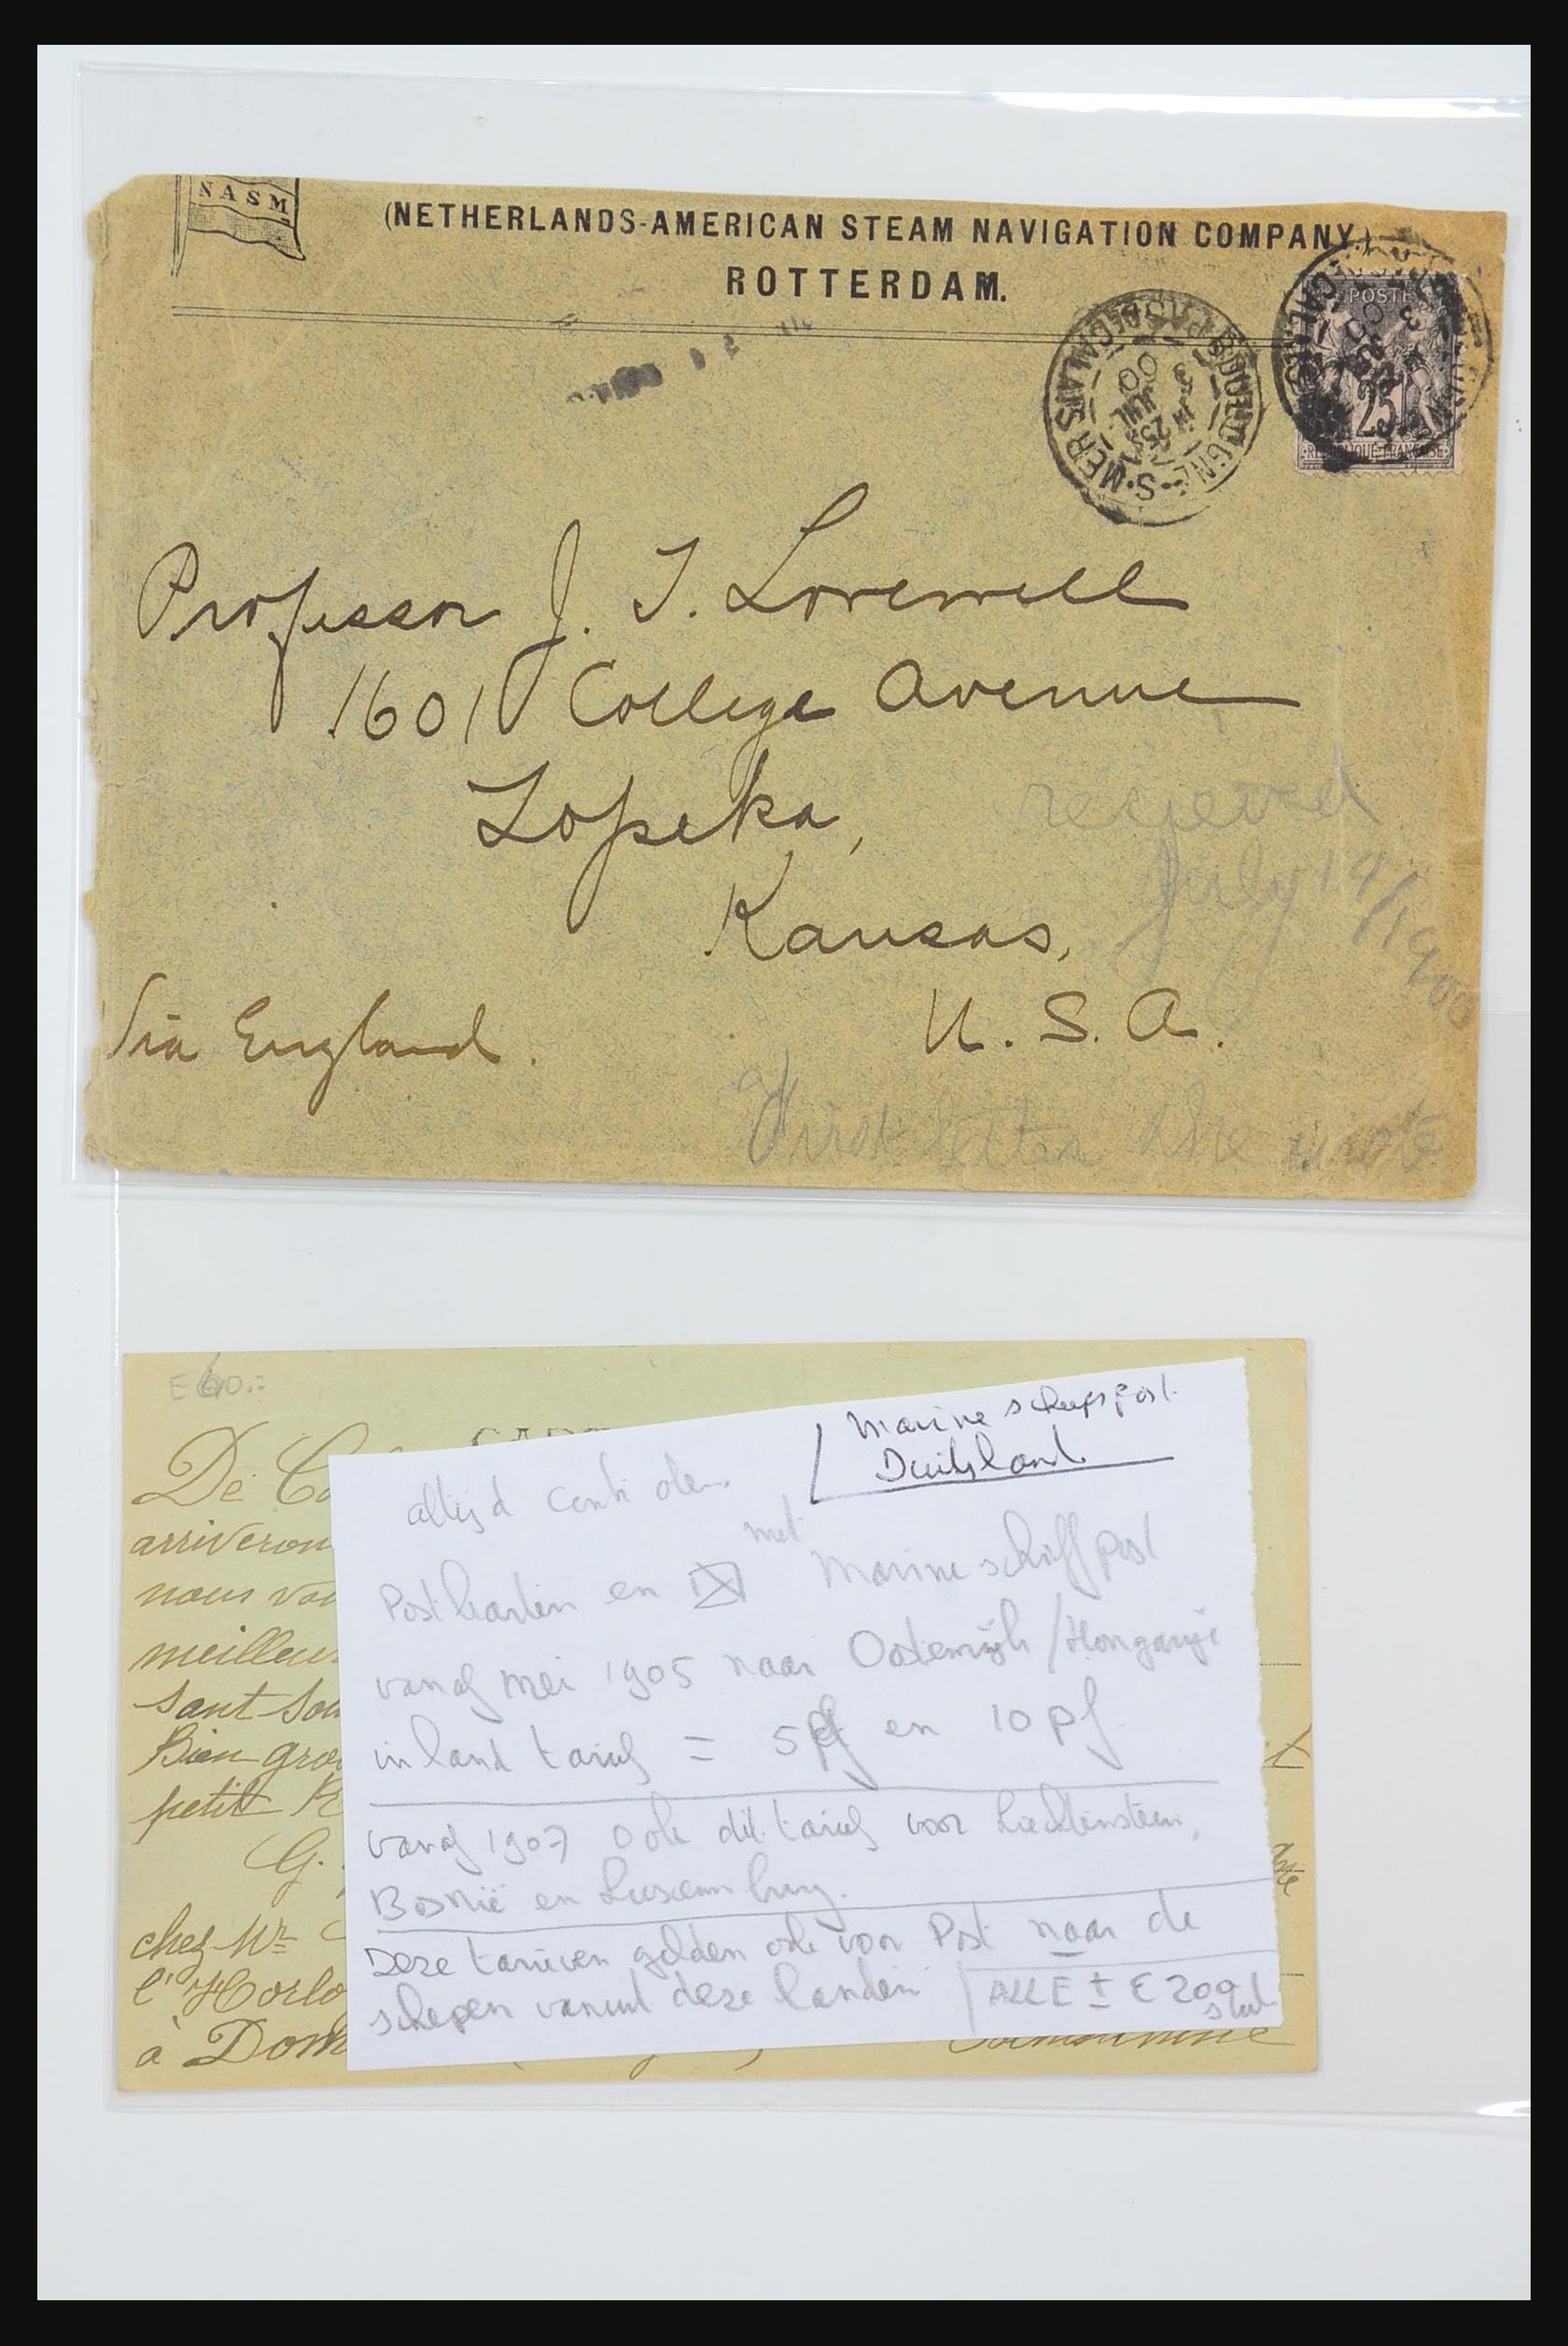 NASM
(NETHERLANDS-AMERICAN STEAM NAVIGATION COMPANY.)
ROTTERDAM.
BOULOGNE-S-MER PAS DE CALAIS
3
25
JUIL
00
POSTE
25
REPUBLIQUE FRANÇAISE
Professor J. T. Lovewell
1601 College Avenue
Topeka,
Kansas,
U. S. A.
Via England.
recieved
July 19/1900
First letter she wrote
De
arriveron
nous
meilleu
sant
Bien
petit
G.
chez Mr
l'Horlo
à Dom
Marine scheepspost
Duitsland
altijd controleren
Postkaarten en met Marineschiffpost
vanaf mei 1905 naar Oostenrijk/Hongarije
inland tarief = 5pf en 10pf.
vanaf 1907 ook dit tarief voor Liechtenstein,
Bosnië en Luxemburg.
Deze tarieven golden ook voor Post naar de
schepen vanuit deze landen
ALLE ± € 200 stuk